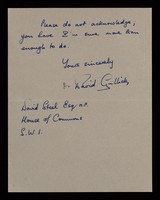 Please do not acknowledge,
you have I'm sure more than
enough to do.
Yours sincerely
David
David Steel Esq. M.P.
House of Commons
S.W.1.